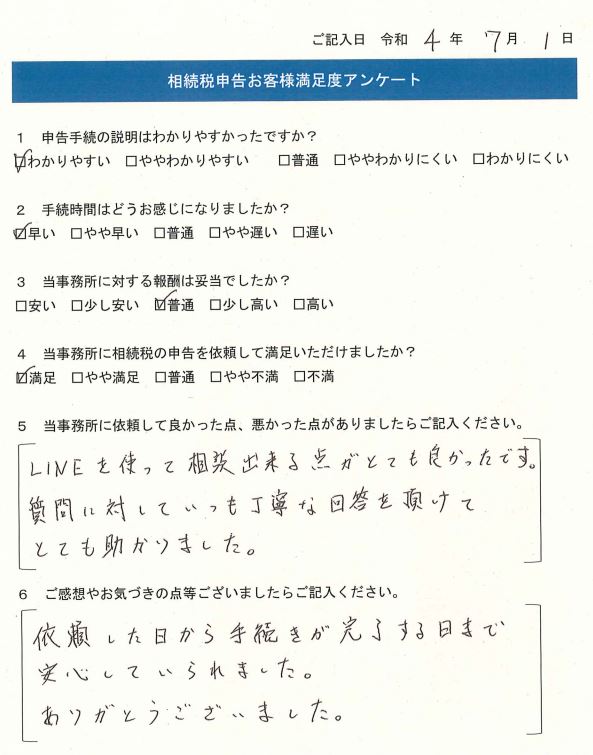 ご記入日 令和 4 年 7 月 1 日
相続税申告お客様満足度アンケート
1 申告手続の説明はわかりやすかったですか？
☑わかりやすい □ややわかりやすい □普通 □ややわかりにくい □わかりにくい
2 手続時間はどうお感じになりましたか？
☑早い □やや早い □普通 □やや遅い □遅い
3 当事務所に対する報酬は妥当でしたか？
□安い □少し安い ☑普通 □少し高い □高い
4 当事務所に相続税の申告を依頼して満足いただけましたか？
☑満足 □やや満足 □普通 □やや不満 □不満
5 当事務所に依頼して良かった点、悪かった点がありましたらご記入ください。
LINEを使って相談出来る点がとても良かったです。
質問に対していつも丁寧な回答を頂けて
とても助かりました。
6 ご感想やお気づきの点等ございましたらご記入ください。
依頼した日から手続きが完了する日まで
安心していられました。
ありがとうございました。